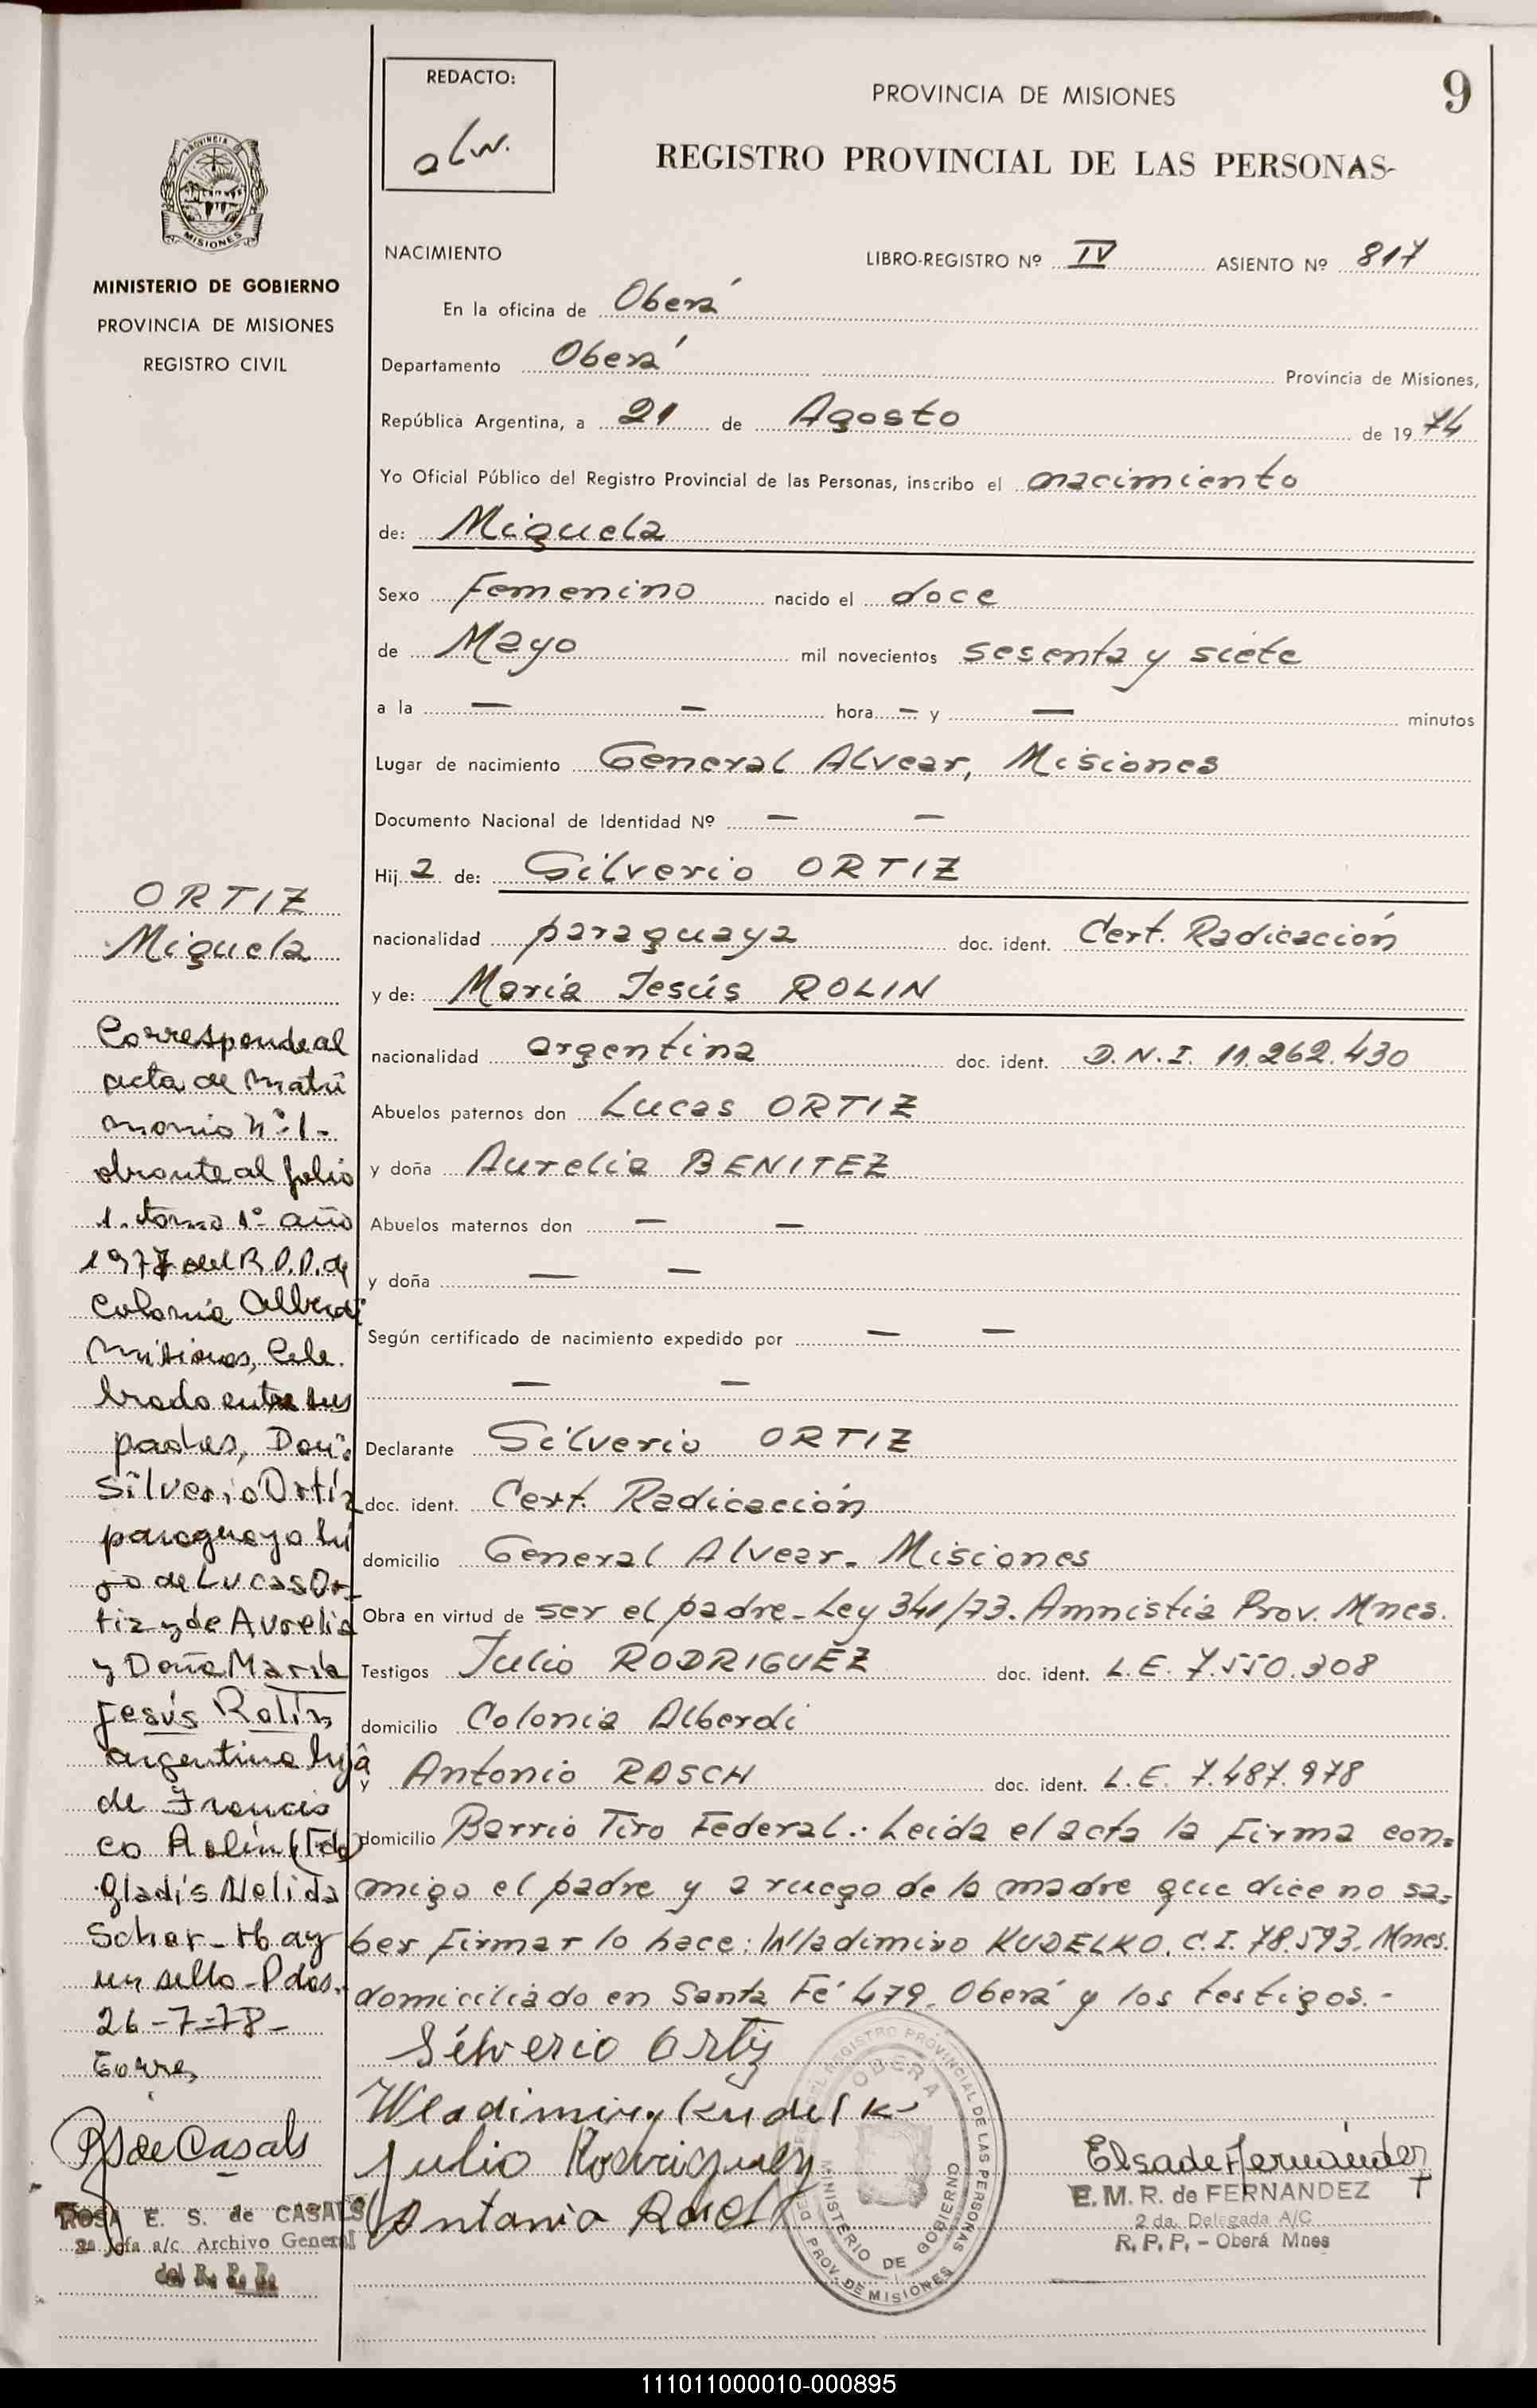 REDACTO:
PROVINCIA DE MISIONES
9
REGISTRO PROVINCIAL DE LAS PERSONAS-
MINISTERIO DE GOBIERNO
PROVINCIA DE MISIONES
REGISTRO CIVIL
NACIMIENTO LIBRO-REGISTRO Nº IV ASIENTO Nº 817
En la oficina de Oberá
Departamento Oberá Provincia de Misiones,
República Argentina, a 21 de Agosto de 1974
Yo Oficial Público del Registro Provincial de las Personas, inscribo el nacimiento
de: Miguela
Sexo Femenino nacido el doce
de Mayo mil novecientos sesenta y siete
a la — — hora — y — minutos
Lugar de nacimiento General Alvear, Misiones
Documento Nacional de Identidad Nº — —
Hija de: Silverio ORTIZ
nacionalidad paraguaya doc. ident. Cert. Radicación
y de: María Jesús ROLIN
nacionalidad argentina doc. ident. D.N.I. 11.262.430
Abuelos paternos don Lucas ORTIZ
y doña Aurelia BENITEZ
Abuelos maternos don — —
y doña — —
Según certificado de nacimiento expedido por — —
— —
Declarante Silverio ORTIZ
doc. ident. Cert. Radicación
domicilio General Alvear. Misiones
Obra en virtud de ser el padre - Ley 341/73. Amnistía Prov. Mnes.
Testigos Julio RODRIGUEZ doc. ident. L.E. 7.550.308
domicilio Colonia Alberdi
y Antonio RASCH doc. ident. L.E. 7.487.978
domicilio Barrio Tiro Federal.: Leída el acta la firma con=
migo el padre y a ruego de la madre que dice no sa=
ber firmar lo hace: Wladimiro KUDELKO. C.I. 78.593. Mnes.
domiciliado en Santa Fé 479. Oberá y los testigos.-
Silverio Ortiz
Wladimiro Kudelk
Julio Rodriguez
Antonio Rasch
Elsa de Fernández
E. M. R. de FERNANDEZ
2 da. Delegada A/C
R. P. P. - Oberá Mnes
REGISTRO PROVINCIAL DE LAS PERSONAS
OBERA
MINISTERIO DE GOBIERNO
PROV. DE MISIONES
ORTIZ
Miguela
Corresponde al
acta de matri
monio Nº 1-
obrante al folio
1. tomo 1º año
1977 del R.P.P. de
Colonia Alberdi
Misiones, Cele
brado entre sus
padres, Don:
Silverio Ortiz
paraguayo hi
jo de Lucas Or-
tiz y de Aurelia
y Doña María
Jesús Rolin,
argentina hija
de Francis
co Rolin (Fdo)
Gladis Nelida
Scher - Hay
un sello - Pdas.
26-7-78-
Torres
RS de Casals
ROSA E. S. de CASALS
2ª Jefa a/c. Archivo General
del R. P. P.
111011000010-000895